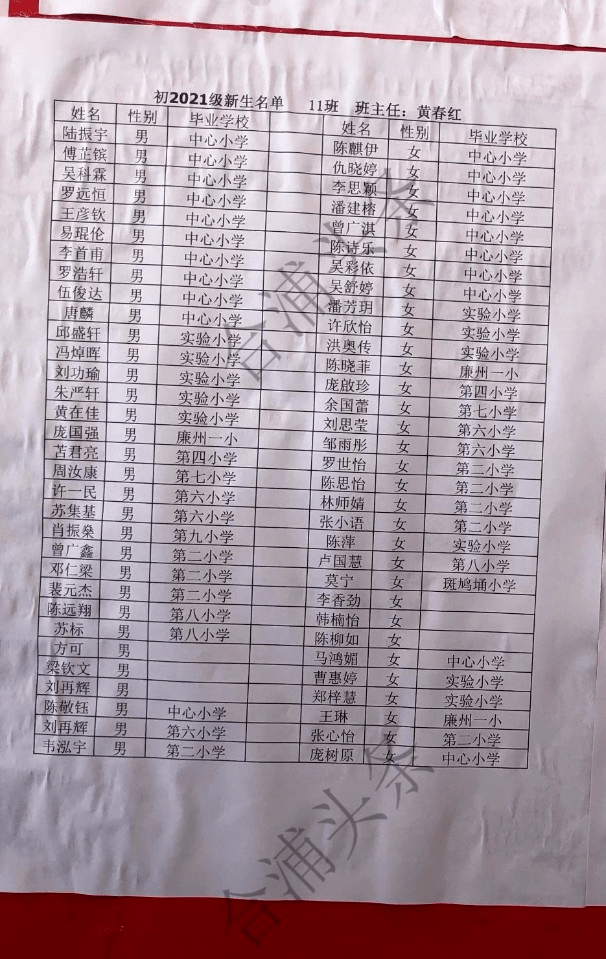 初2021级新生名单 11班 班主任：黄春红
姓名 性别 毕业学校 姓名 性别 毕业学校
陆振宇 男 中心小学 陈麒伊 女 中心小学
傅芷镔 男 中心小学 仇晓婷 女 中心小学
吴科霖 男 中心小学 李思颖 女 中心小学
罗远恒 男 中心小学 潘建榕 女 中心小学
王彦钦 男 中心小学 曾广淇 女 中心小学
易琨伦 男 中心小学 陈诗乐 女 中心小学
李首甫 男 中心小学 吴彩依 女 中心小学
罗浩轩 男 中心小学 吴舒婷 女 中心小学
伍俊达 男 中心小学 潘芳玥 女 实验小学
唐麟 男 中心小学 许欣怡 女 实验小学
邱盛轩 男 实验小学 洪奥传 女 实验小学
冯焯晖 男 实验小学 陈晓菲 女 廉州一小
刘功瑜 男 实验小学 庞啟珍 女 第四小学
朱严轩 男 实验小学 余国蕾 女 第七小学
黄在佳 男 实验小学 刘思莹 女 第六小学
庞国强 男 廉州一小 邹雨彤 女 第六小学
苫君亮 男 第四小学 罗世怡 女 第二小学
周汝康 男 第七小学 陈思怡 女 第二小学
许一民 男 第六小学 林师婧 女 第二小学
苏集基 男 第六小学 张小语 女 第二小学
肖振燊 男 第九小学 陈萍 女 实验小学
曾广鑫 男 第二小学 卢国慧 女 第八小学
邓仁梁 男 第二小学 莫宁 女 斑鸠埇小学
裴元杰 男 第二小学 李香劲 女
陈远翔 男 第八小学 韩楠怡 女
苏标 男 第八小学 陈柳如 女
方可 男 马鸿媚 女 中心小学
梁钦文 男 曹惠婷 女 实验小学
刘再辉 男 郑梓慧 女 实验小学
陈敬钰 男 中心小学 王琳 女 廉州一小
刘再辉 男 第六小学 张心怡 女 第二小学
韦泓宇 男 第二小学 庞树原 女 中心小学
合浦头条
合浦头条